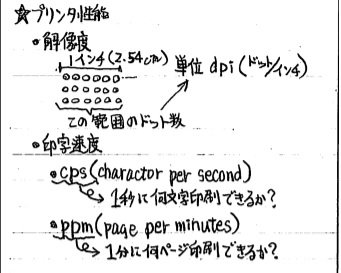 ☆プリンタ性能
・解像度
1インチ(2.54cm)
単位 dpi (ドット/インチ)
この範囲のドット数
・印字速度
・cps(charactor per second)
1秒に何文字印刷できるか?
・ppm(page per minutes)
1分に何ページ印刷できるか?